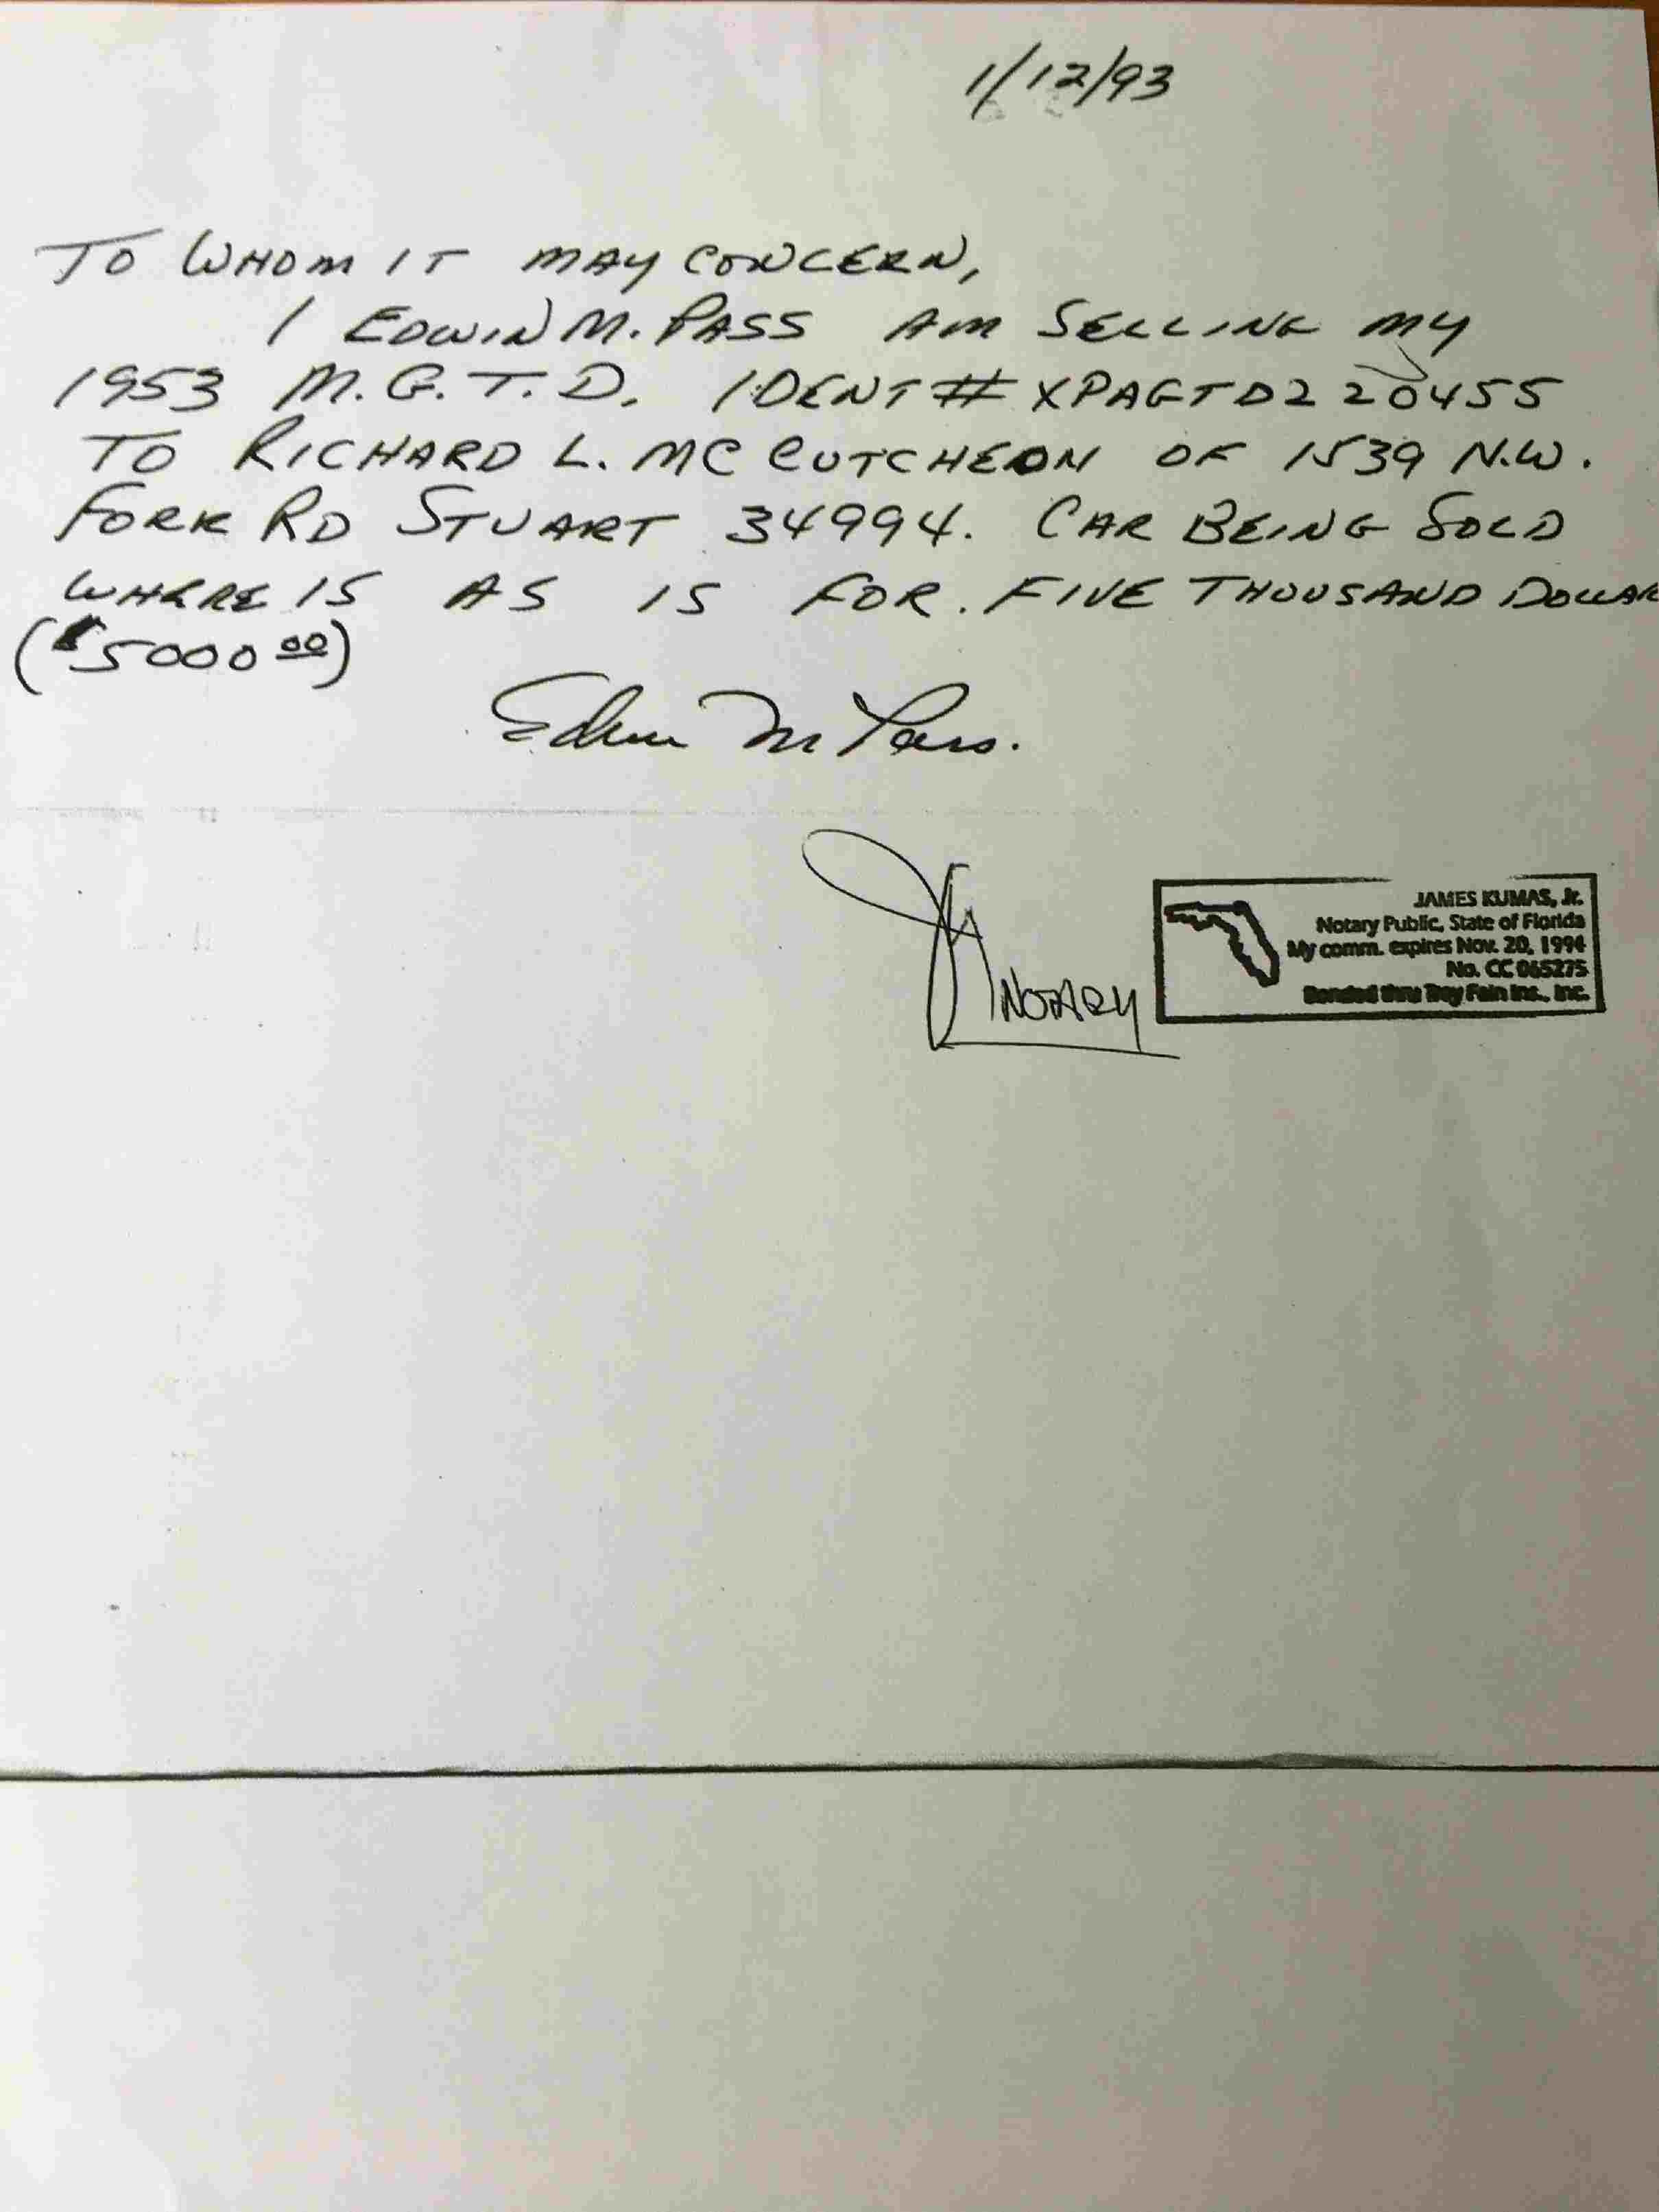 1/12/93
TO WHOM IT MAY CONCERN,
I EDWIN M. PASS AM SELLING MY
1953 M.G.T.D. IDENT # XPAGTD220455
TO RICHARD L. MC CUTCHEON OF 1539 N.W.
FORK RD STUART 34994. CAR BEING SOLD
WHERE IS AS IS FOR. FIVE THOUSAND DOLLAR
($5000 00)
Edwin M Pass.
NOTARY
JAMES KUMAS, Jr.
Notary Public, State of Florida
My comm. expires Nov. 20, 1994
No. CC 065275
Bonded thru Troy Fain Ins., Inc.